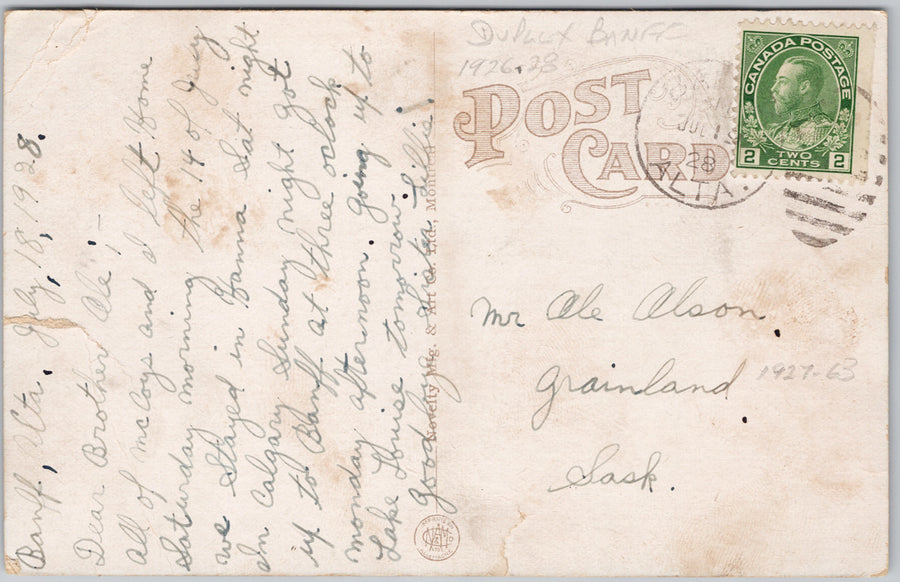 Banff, Alta. July, 18, 1928.
Dear Brother Ole! —
All of McCoys and I left Home
Saturday morning the 14 of July
we stayed in Hanna Sat night
In Calgary Sunday night got
up to Banff at three oclock
monday afternoon. going up to
Lake Louise tomorrow.
Goodby Sister Lillie!
Novelty Mfg. & Art Co. Ltd., Montreal
DUPLEX BANFF
1926-28
POST
CARD
CANADA POSTAGE
2 TWO CENTS 2
JUL 18
28
ALTA.
Mr Ole Olson.
Grainland
1927-63
Sask.